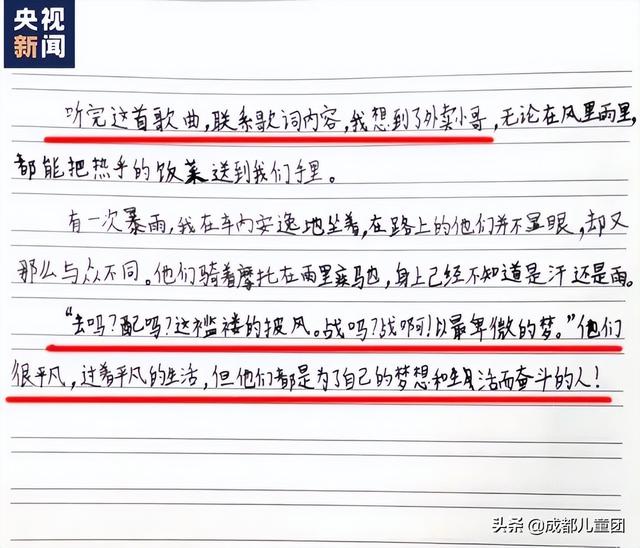 央视
新闻
听完这首歌曲,联系歌词内容,我想到了外卖小哥,无论在风里雨里,
都能把热乎的饭菜送到我们手里。
有一次暴雨,我在车内安逸地坐着,在路上的他们并不显眼,却又
那么与众不同。他们骑着摩托在雨里疾驰,身上已经不知道是汗还是雨。
“去吗?配吗?这褴褛的披风。战吗?战啊!以最卑微的梦。”他们
很平凡,过着平凡的生活,但他们都是为了自己的梦想和生活而奋斗的人!
头条 @成都儿童团